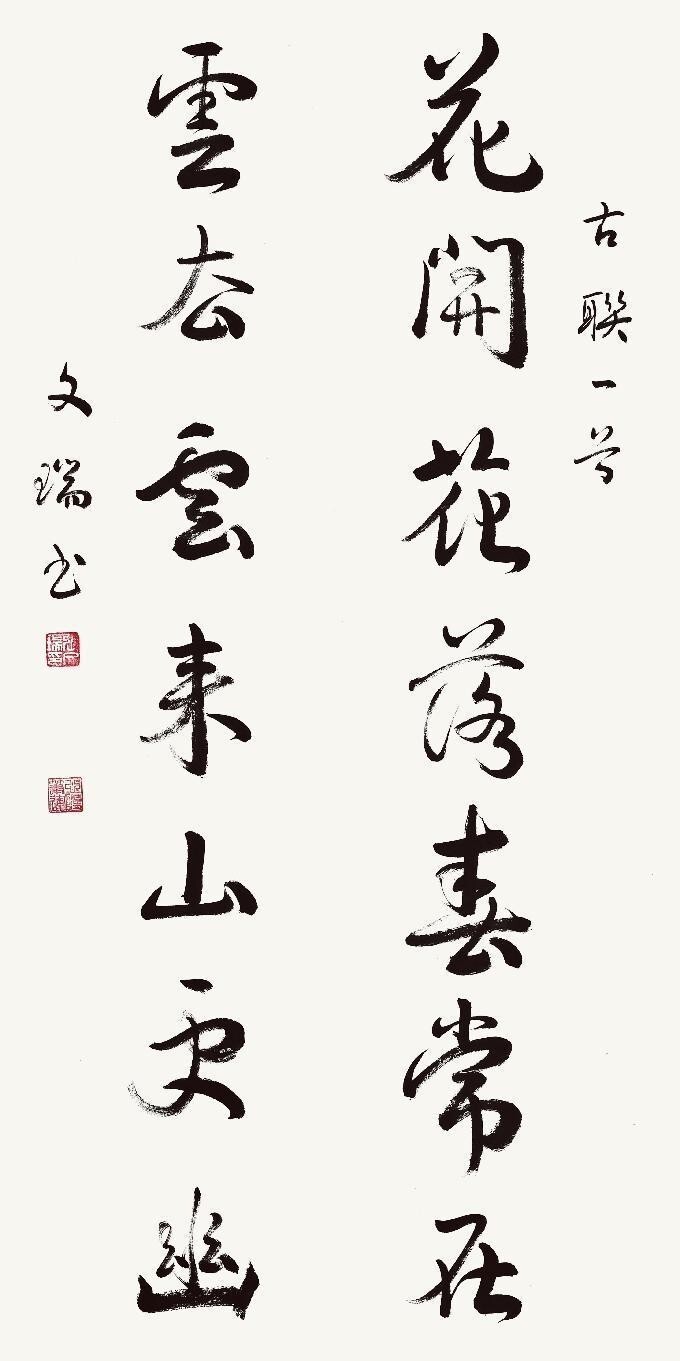 古聯一首
花開花落春常在
雲去雲来山更幽
文瑞书